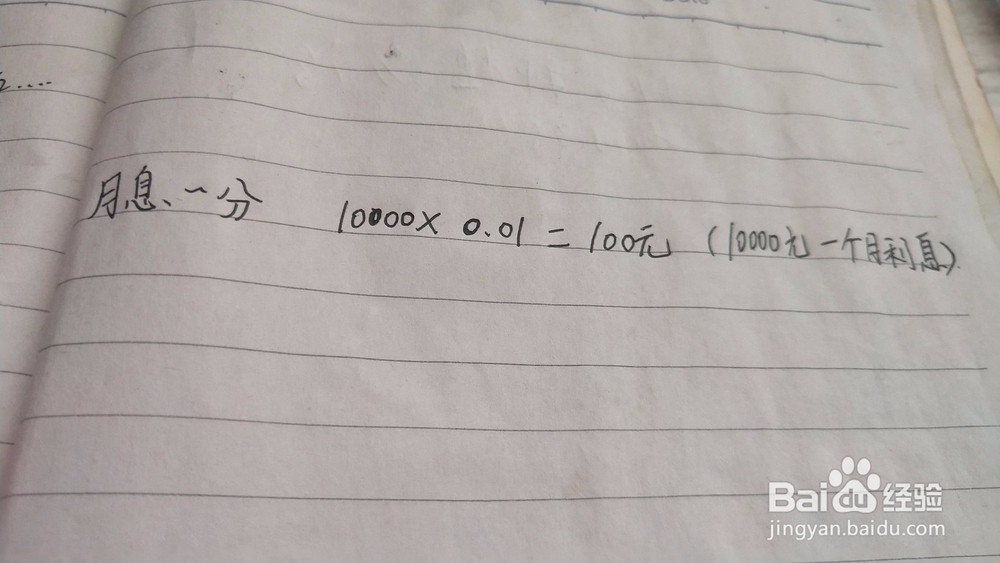 月息、一分 10000× 0.01 = 100元 (10000元一个月利息)
Baidu经验
jingyan.baidu.com